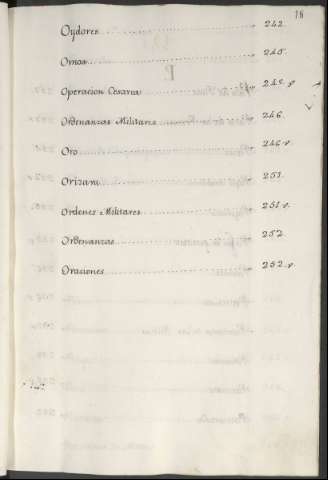 76
Oydores 242.
Ornos 245.
Operacion Cesarea 245.v
Ordenanzas Militares 246.
Oro 246.v.
Orizava 251.
Ordenes Militares 251.v.
Ordenanzas 252
Oraciones 252.v.